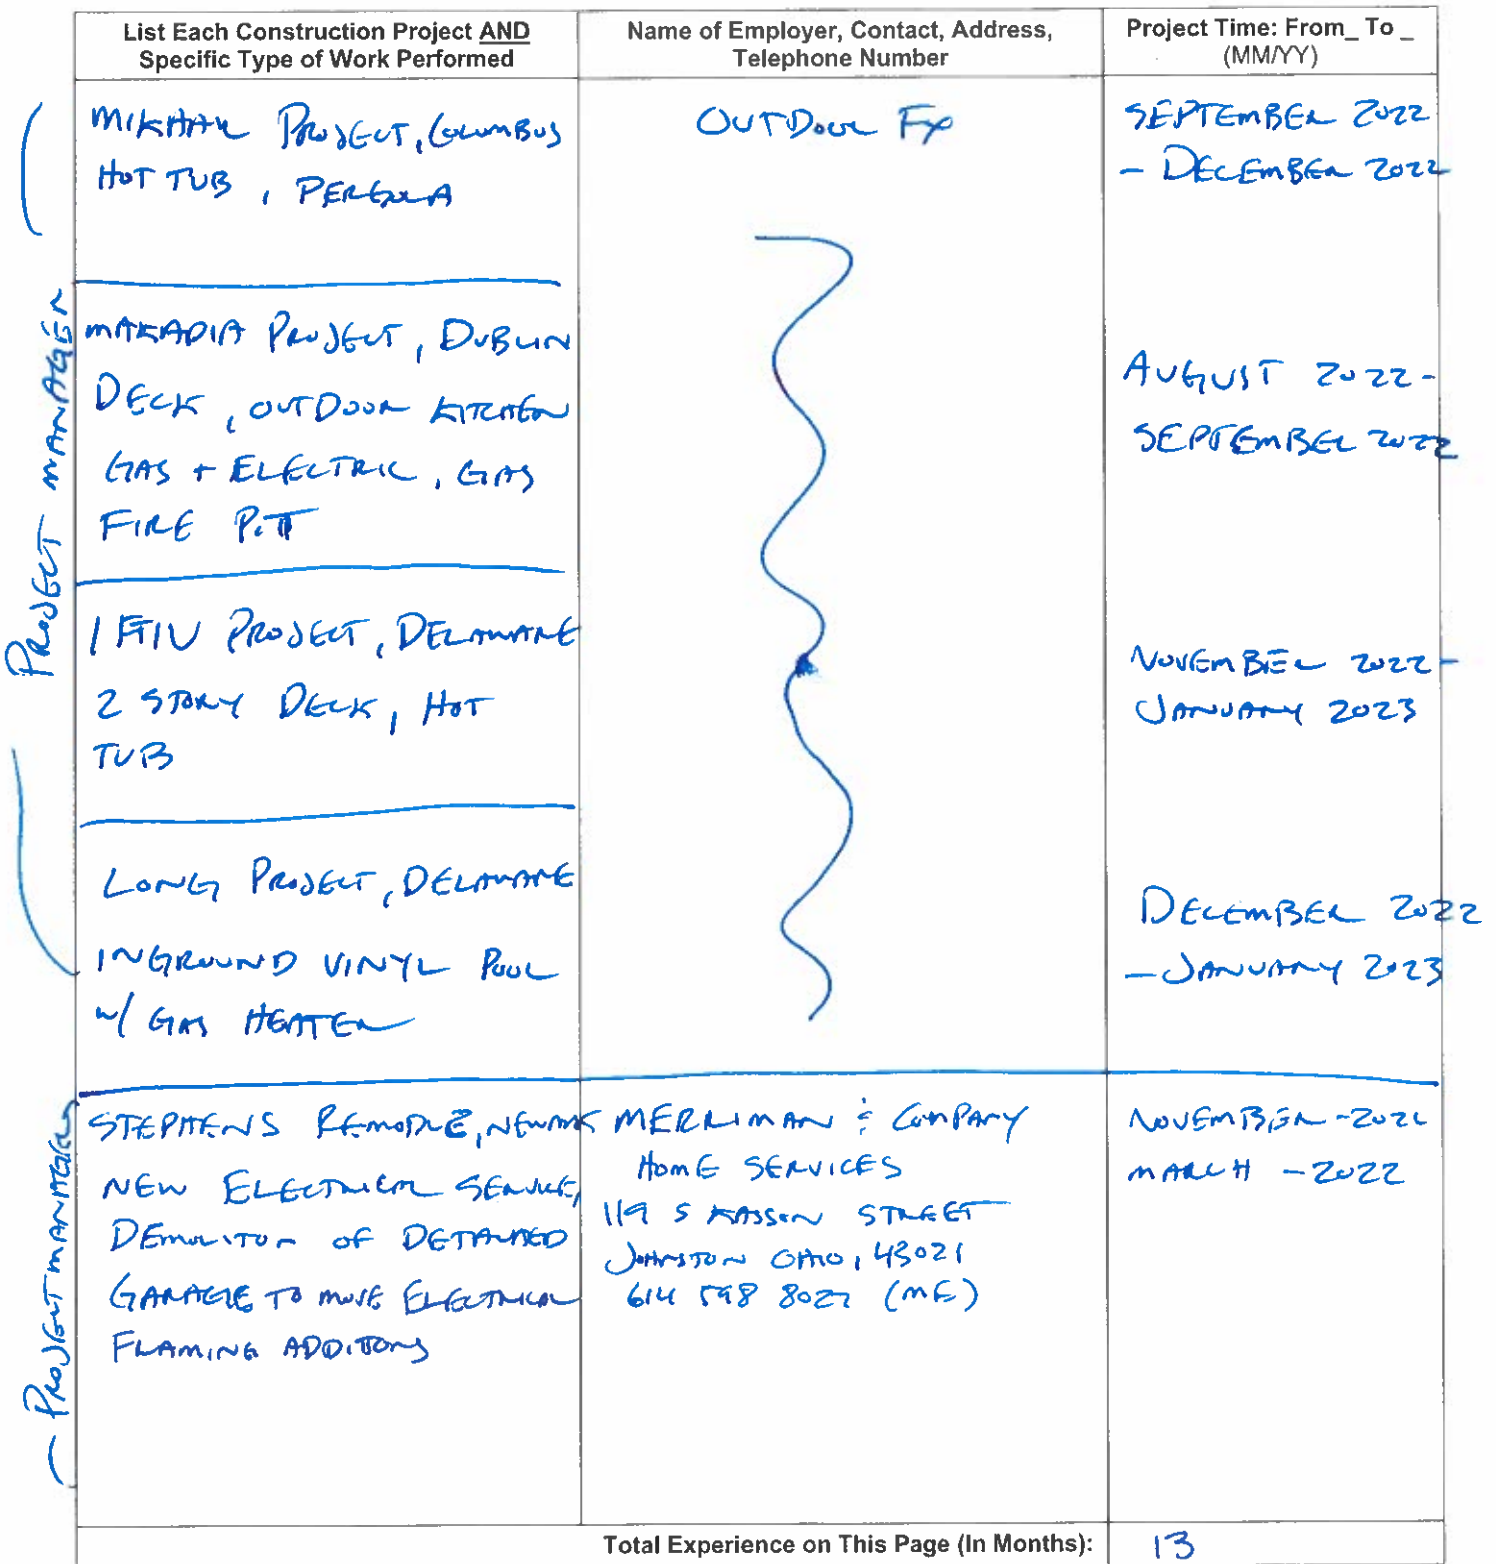 List Each Construction Project AND
Specific Type of Work Performed
Name of Employer, Contact, Address,
Telephone Number
Project Time: From_ To _
(MM/YY)
PROJECT MANAGER
MIKHAIL PROJECT, COLUMBUS
HOT TUB, PERGOLA
OUTDOOR FX
SEPTEMBER 2022
- DECEMBER 2022
MAKADIA PROJECT, DUBLIN
DECK, OUTDOOR KITCHEN
GAS + ELECTRIC, GAS
FIRE PITT
AUGUST 2022 -
SEPTEMBER 2022
PROJECT, DELAWARE
2 STORY DECK, HOT
TUB
NOVEMBER 2022 -
JANUARY 2023
LONG PROJECT, DELAWARE
INGROUND VINYL POOL
w/ GAS HEATER
DECEMBER 2022
- JANUARY 2023
PROJECT MANAGER
STEPHENS REMODLE, NEWARK
NEW ELECTRICAL SERVICE,
DEMOLITON OF DETACHED
GARAGE TO MOVE ELECTRICAL
FRAMING ADDITONS
MERRIMAN & COMPANY
HOME SERVICES
119 S KASSON STREET
JOHNSTON OHIO, 43031
614 598 8027 (ME)
NOVEMBER -
MARCH - 2022
Total Experience on This Page (In Months):
13